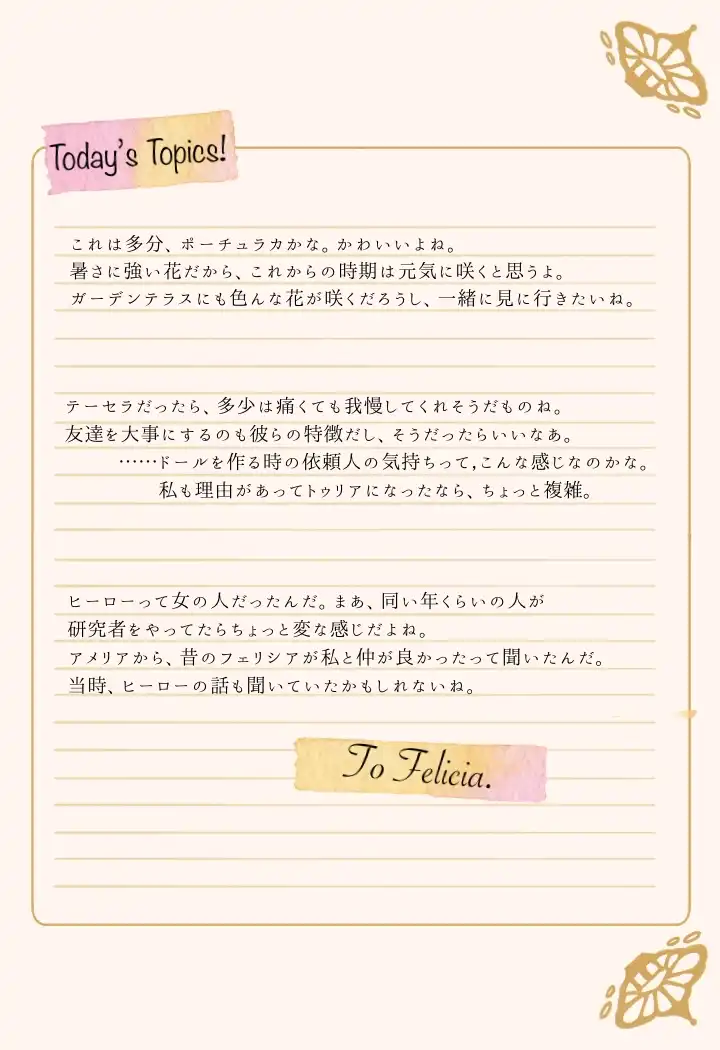 Today's Topics!
これは多分、ポーチュラカかな。かわいいよね。
暑さに強い花だから、これからの時期は元気に咲くと思うよ。
ガーデンテラスにも色んな花が咲くだろうし、一緒に見に行きたいね。
テーセラだったら、多少は痛くても我慢してくれそうだものね。
友達を大事にするのも彼らの特徴だし、そうだったらいいなあ。
……ドールを作る時の依頼人の気持ちって,こんな感じなのかな。
私も理由があってトゥリアになったなら、ちょっと複雑。
ヒーローって女の人だったんだ。まあ、同い年くらいの人が
研究者をやってたらちょっと変な感じだよね。
アメリアから、昔のフェリシアが私と仲が良かったって聞いたんだ。
当時、ヒーローの話も聞いていたかもしれないね。
To Felicia.